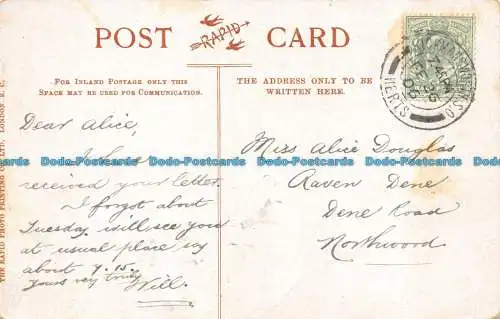 POST RAPID CARD
FOR INLAND POSTAGE ONLY THIS
SPACE MAY BE USED FOR COMMUNICATION.
THE ADDRESS ONLY TO BE
WRITTEN HERE.
THE RAPID PHOTO PRINTING CO. LTD. LONDON E. C.
HERTS
06
Dear Alice,
I have
received your letter.
I forgot about
Tuesday, will see you
at usual place say
about 7.15.
Yours very truly
Will.
Miss Alice Douglas
Raven Dene
Dene Road
Northwood
Dady-Postcards